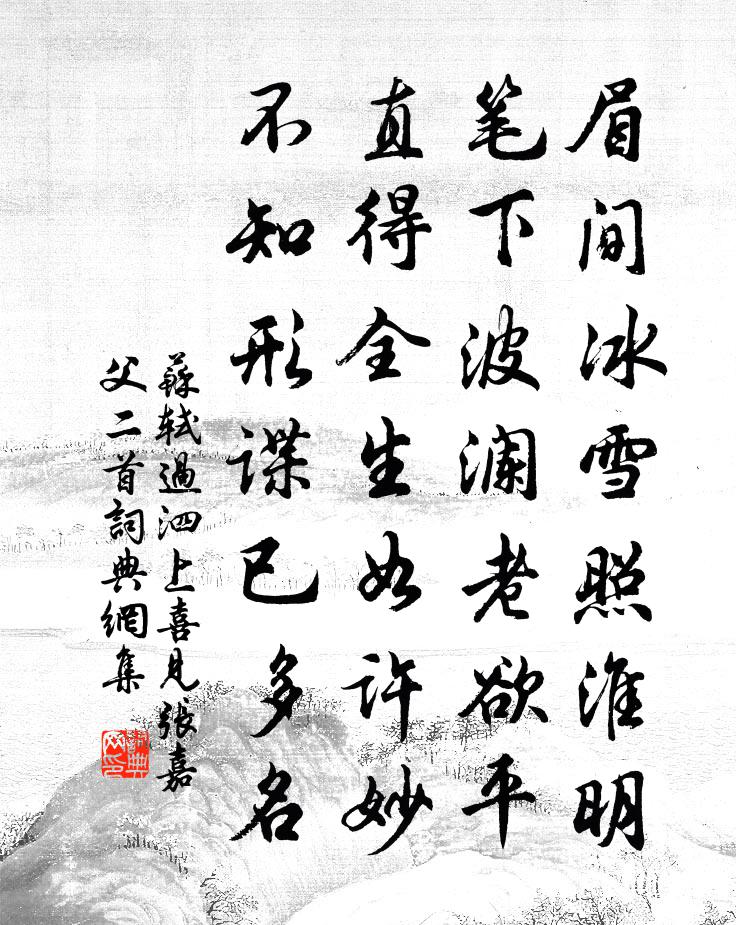 眉间冰雪照淮明
笔下波澜老欲平
直得全生如许妙
不知形谍已多名
蘇轼過泗上喜見張嘉
父二首詞典網集
詞典
网印